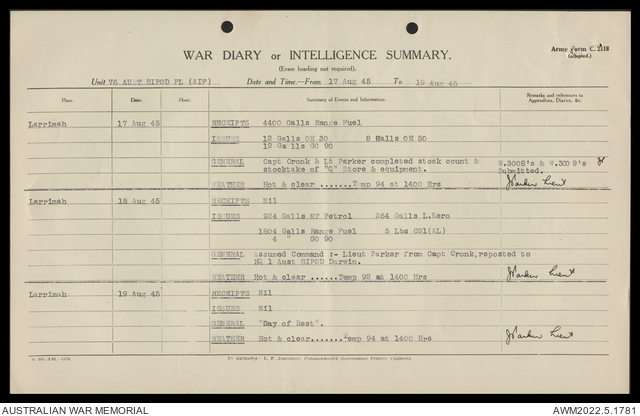 Army Form C.2118
(adapted.)
WAR DIARY or INTELLIGENCE SUMMARY.
(Erase heading not required).
Unit 76 AUST BIPOD PL (AIF) Date and Time.—From 17 Aug 45 To 19 Aug 45
Place. Date. Hour. Summary of Events and Information. Remarks and references to Appendices, Diaries, &c.
Larrimah 17 Aug 45 RECEIPTS 4400 Galls Range Fuel
ISSUES 12 Galls OE 30 8 Halls OE 50
12 Galls GO 90
GENERAL Capt Cronk & Lt Parker completed stock count & W.3008's & W.3009's
stocktake of "Q" Store & equipment. Submitted.
WEATHER Hot & clear .......Temp 94 at 1400 Hrs JParker Lieut
Larrimah 18 Aug 45 RECEIPTS Nil
ISSUES 924 Galls MT Petrol 264 Galls L.Kero
1804 Galls Range Fuel 5 Lbs CGl(AL)
4 " GO 90
GENERAL Assumed Command :- Lieut Parker from Capt Cronk,reposted to
HQ 1 Aust BIPOD Darwin.
WEATHER Hot & clear ......Temp 92 at 1400 Hrs JParker Lieut
Larrimah 19 Aug 45 RECEIPTS Nil
ISSUES Nil
GENERAL "Day of Rest".
WEATHER Hot & clear.......Temp 94 at 1400 Hrs JParker Lieut
By Authority: L. F. Johnston, Commonwealth Government Printer, Canberra.
AUSTRALIAN WAR MEMORIAL AWM2022.5.1781